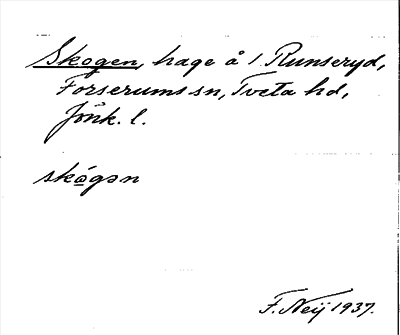 Skogen, hage å 1 Runseryd,
Forserums sn, Tveta hd,
Jönk. l.
skógən
F. Neij 1937.